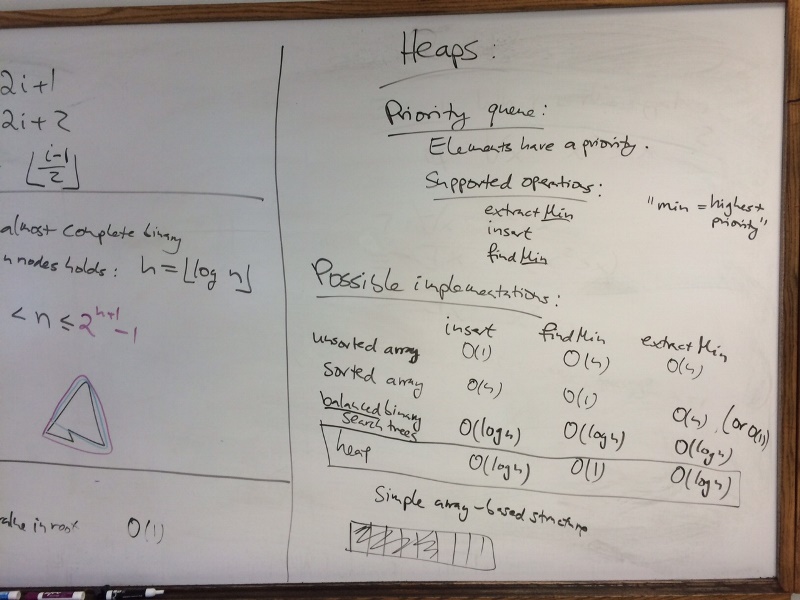 2i+1
2i+2
⌊i-1/2⌋
almost complete binary
n nodes holds: h=⌊log n⌋
< n ≤ 2^{h+1} -1
value in root O(1)
Heaps:
Priority queue:
Elements have a priority.
Supported operations:
extract Min
insert
find Min
"min = highest
priority"
Possible implementations:
insert find Min extract Min
unsorted array O(1) O(n) O(n)
Sorted array O(n) O(1) O(n), (or O(1))
balanced binary
search trees O(log n) O(log n) O(log n)
heap O(log n) O(1) O(log n)
Simple array-based structure